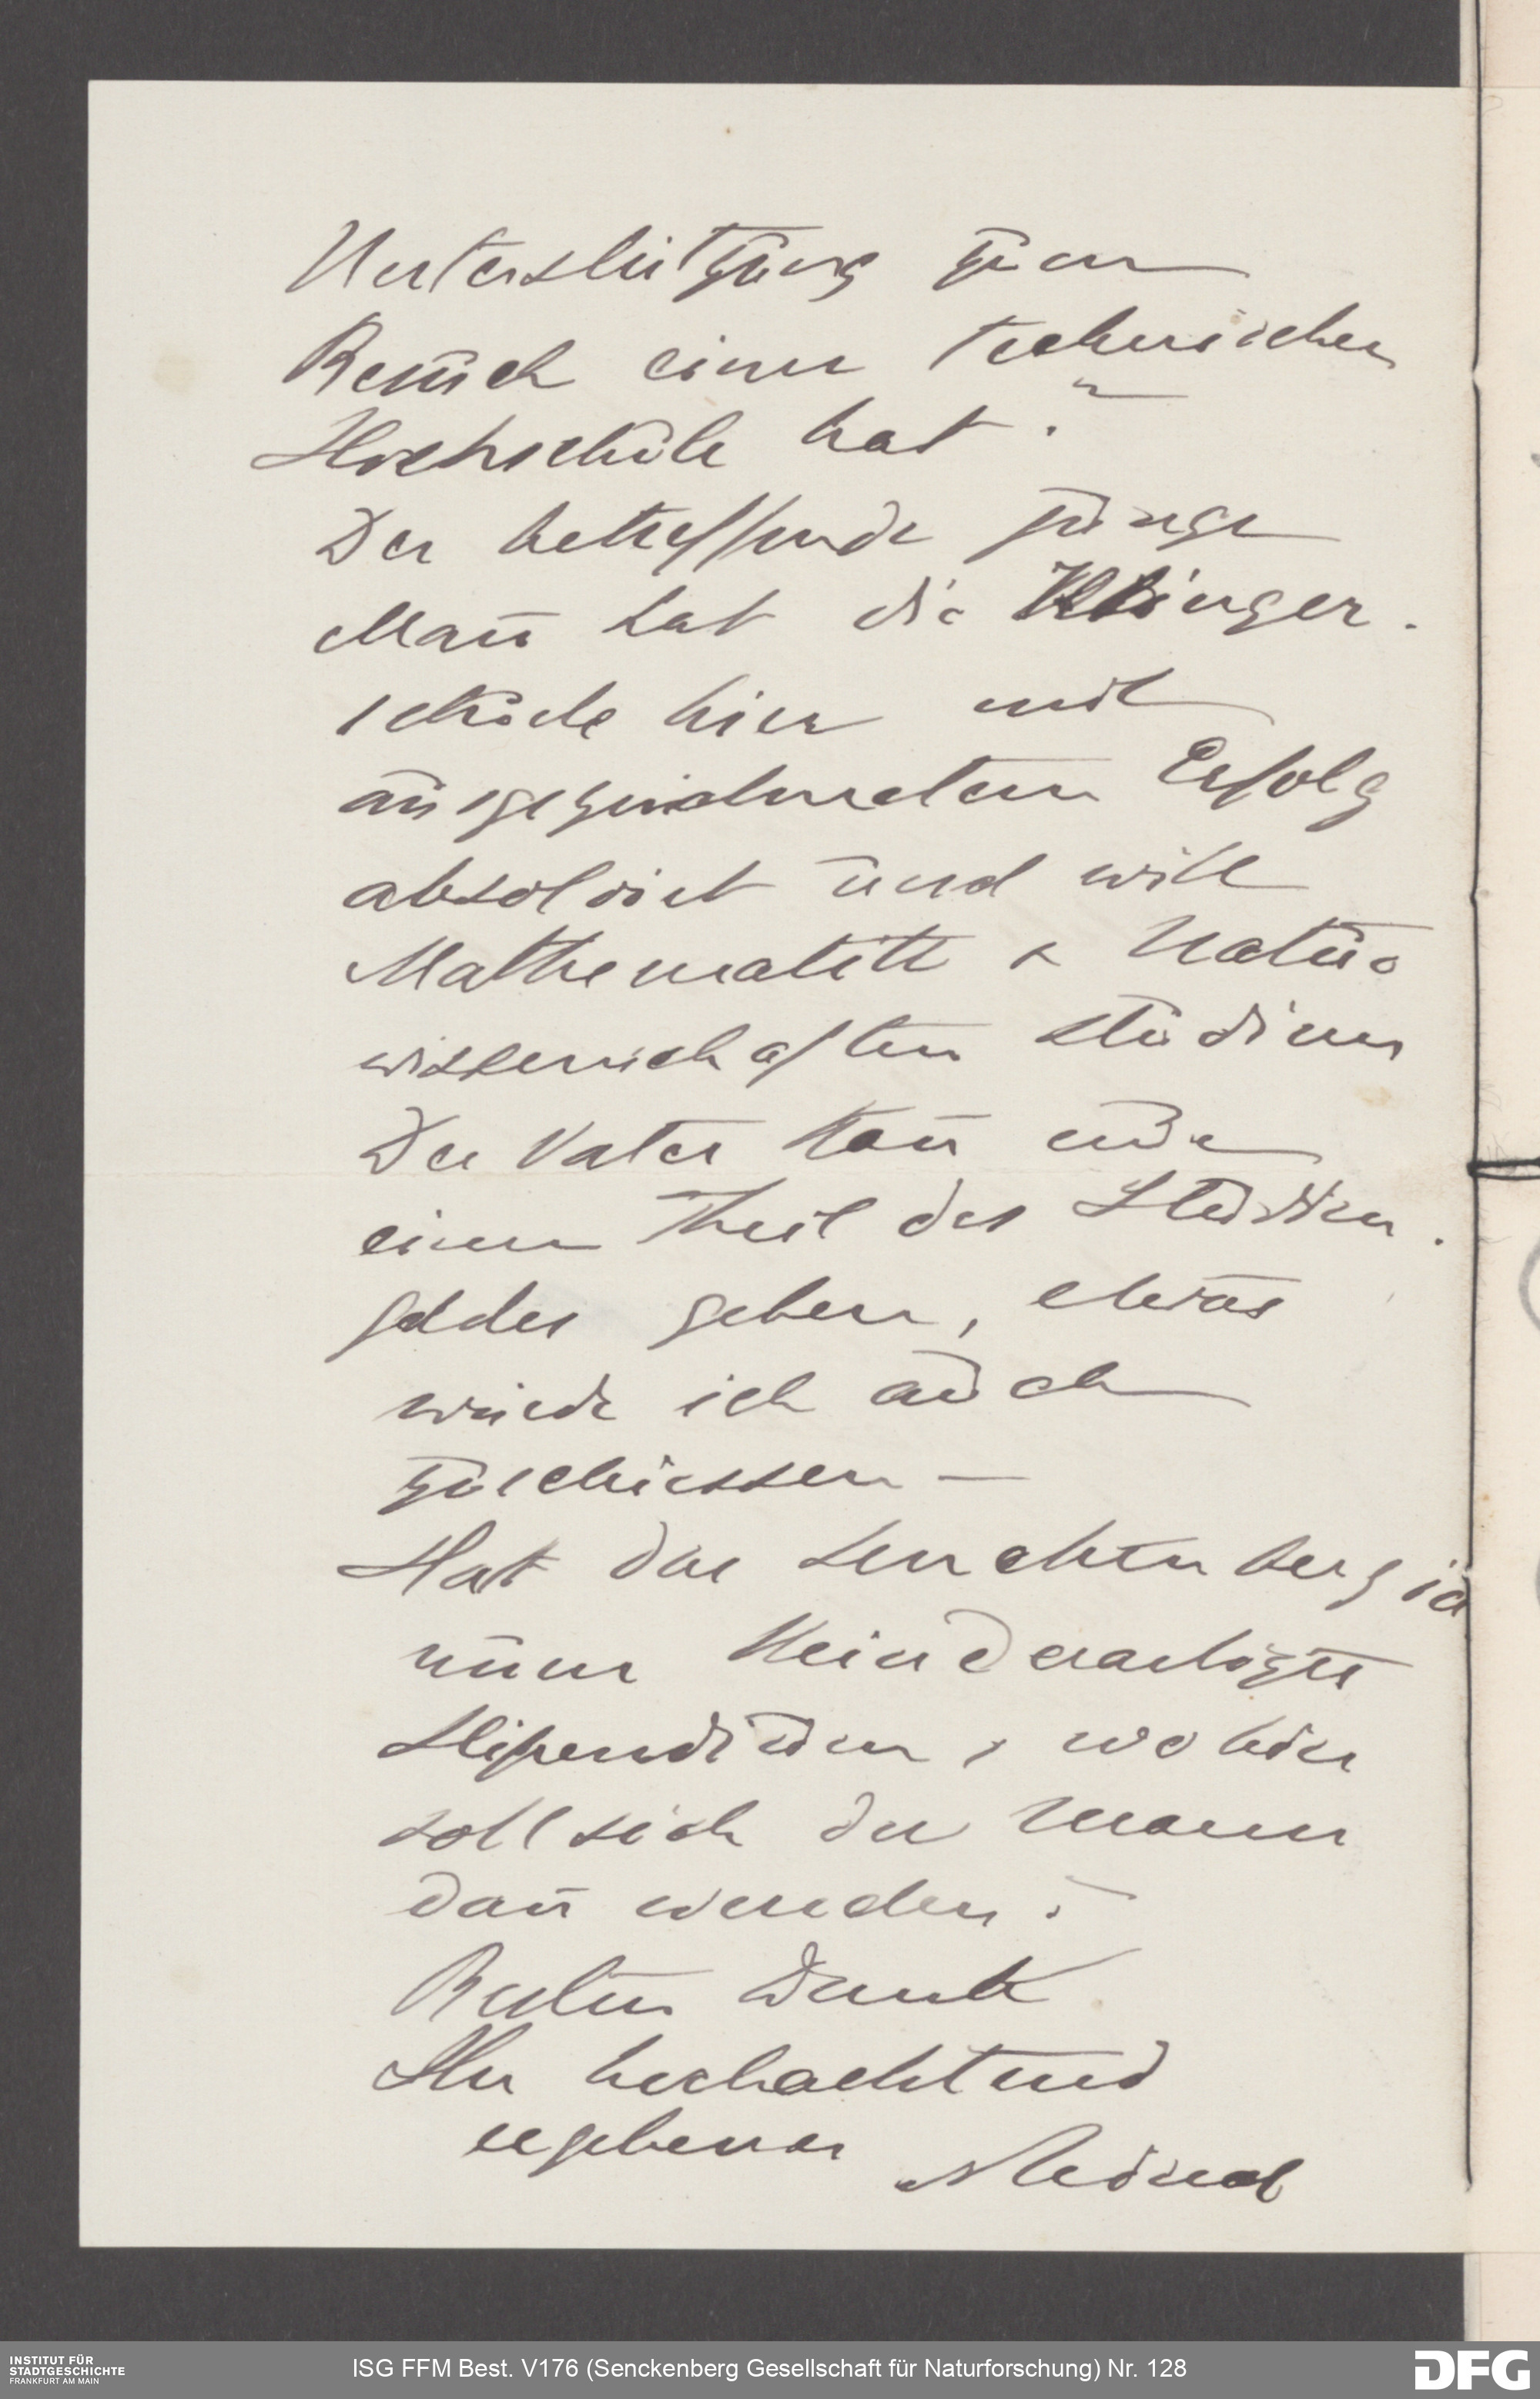 Unterstützung zum
Besuch einer technischen
Hochschule hat?
Der betreffende junge
Mañ hat die Klinger-
schule hier mit
ausgezeichnetem Erfolg
absolvirt und will
Mathematik & Natur-
wissenschaften studieren
Der Vater kañ
einen Theil des Studien-
geldes geben, etwas
würde ich auch
zuschiessen –
Hat das Senckenbergia
num kein derartiges
Stipendium, wohin
soll sich der Mann
dañ wenden?
Besten Dank
Ihr hochachtend
ergebener
INSTITUT FÜR
STADTGESCHICHTE
FRANKFURT AM MAIN
ISG FFM Best. V176 (Senckenberg Gesellschaft für Naturforschung) Nr. 128
DFG